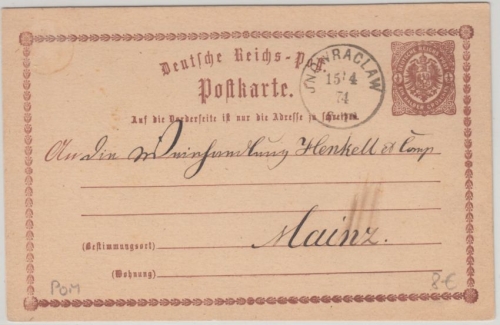 Deutsche Reichs-Post
Postkarte.
INOWRACLAW
15/4
74
Auf die Vorderseite ist nur die Adresse zu schreiben.
An die Weinhandlung Henkell & Comp
Mainz.
(Bestimmungsort)
(Wohnung)
POM
8-€